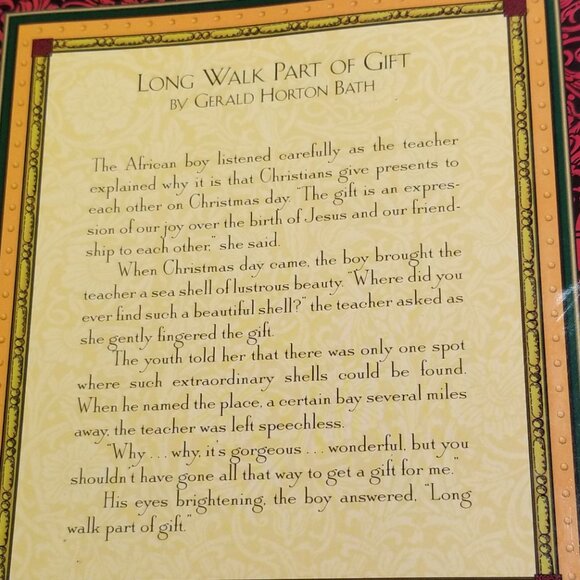 LONG WALK PART OF GIFT
BY GERALD HORTON BATH
The African boy listened carefully as the teacher
explained why it is that Christians give presents to
each other on Christmas day. "The gift is an expres-
sion of our joy over the birth of Jesus and our friend-
ship to each other," she said.
When Christmas day came, the boy brought the
teacher a sea shell of lustrous beauty. "Where did you
ever find such a beautiful shell?" the teacher asked as
she gently fingered the gift.
The youth told her that there was only one spot
where such extraordinary shells could be found.
When he named the place, a certain bay several miles
away, the teacher was left speechless.
"Why . . . why, it's gorgeous . . . wonderful, but you
shouldn't have gone all that way to get a gift for me."
His eyes brightening, the boy answered, "Long
walk part of gift."